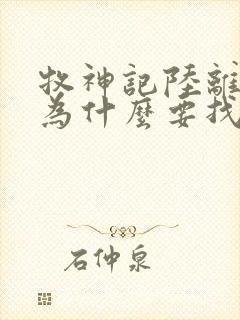 牧神記陸離
為什麼要找
石仲泉